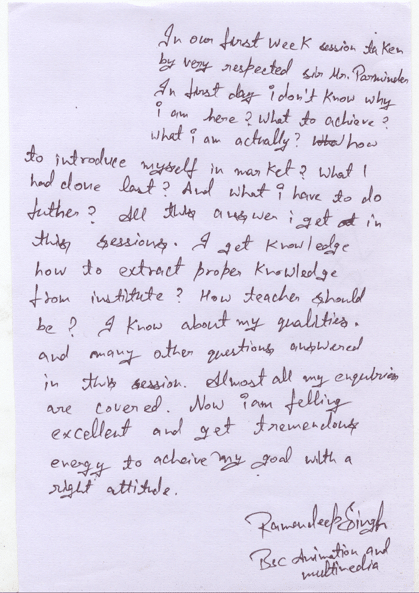 In our first week session taken
by very respected sir Mr. Parminder
In first day i don't know why
i am here? What to achieve?
What i am actually? how
to introduce myself in market? What I
had done last? And what i have to do
futher? All this answer i get in
this sessions. I get knowledge
how to extract proper knowledge
from institute? How teacher should
be? I know about my qualities.
and many other questions answered
in this session. Almost all my enquiries
are covered. Now i am felling
excellent and get tremendous
energy to acheive my goal with a
right attitude.
Ramandeep Singh
Bsc Animation and
multimedia